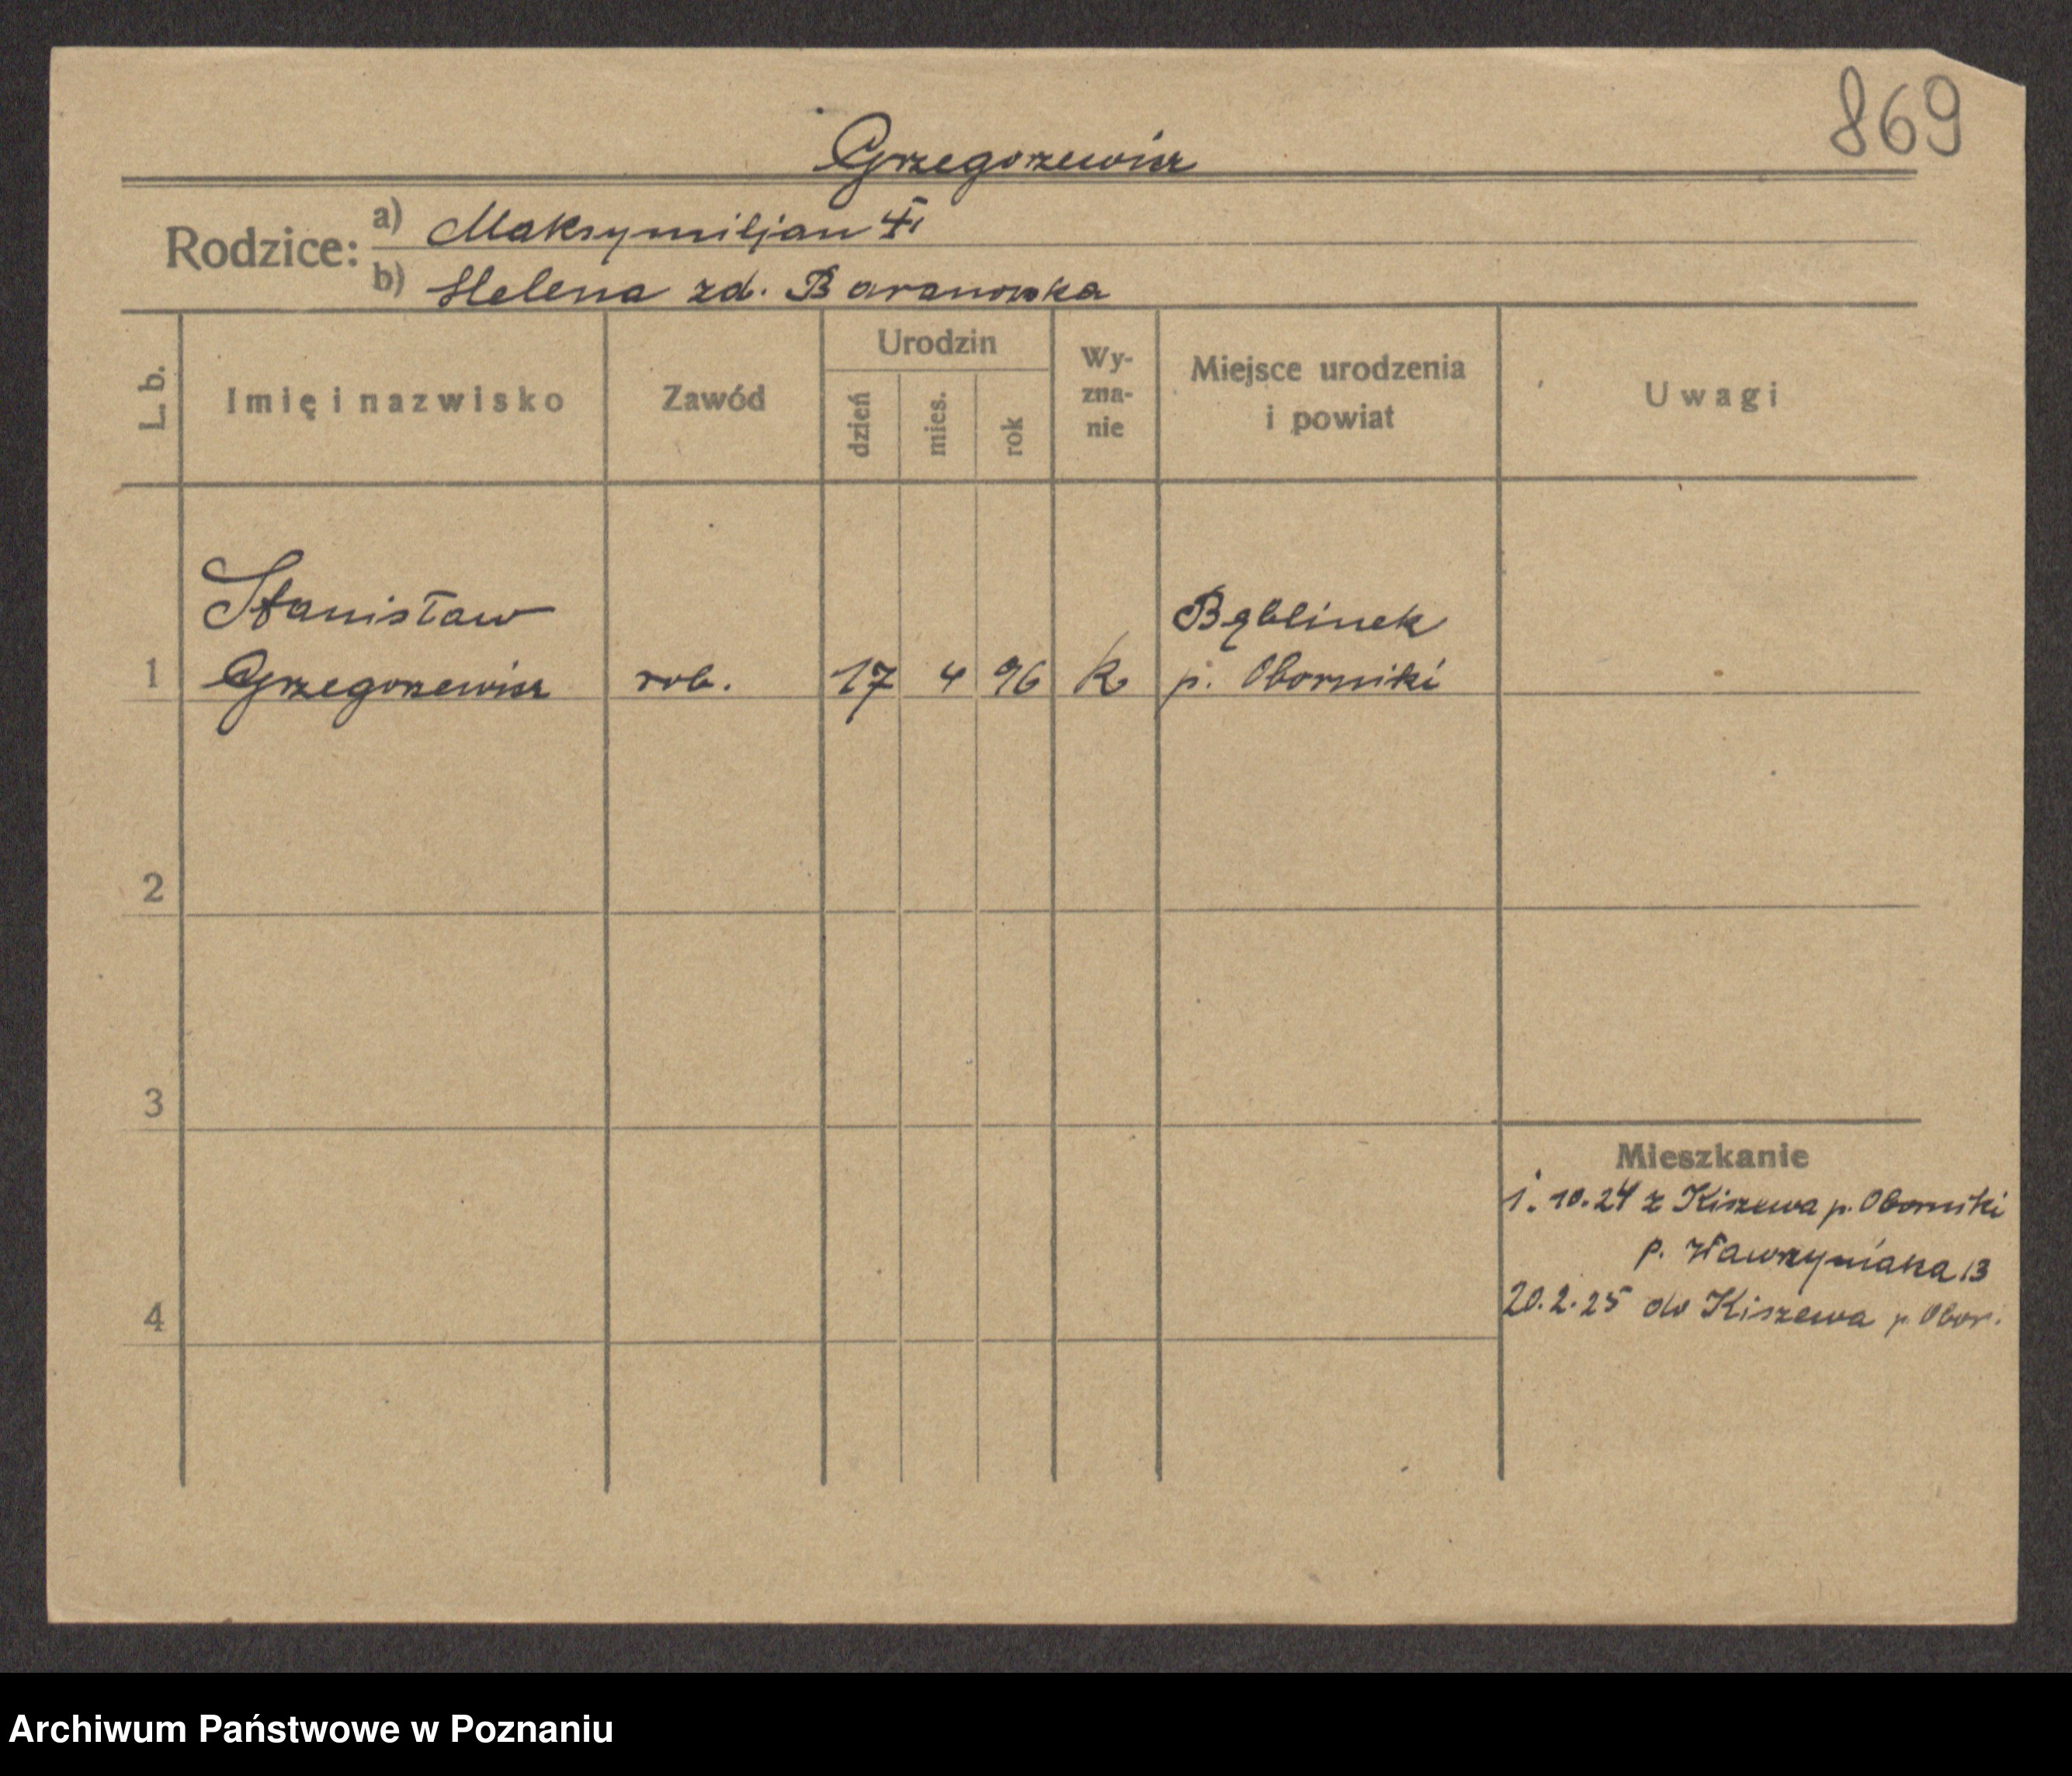 869
Grzegorzewicz
Rodzice: a) Maksymiljan
b) Helena zd. Baranowska
L. b.
Imię i nazwisko
Zawód
Urodzin
dzień
mies.
rok
Wy-
zna-
nie
Miejsce urodzenia
i powiat
Uwagi
Stanisław
Bąblinek
1 Grzegorzewicz rob. 17 4 96 k p. Oborniki
2
3
Mieszkanie
1. 10.24 z Kiszewa p. Oborniki
p. Wawrzyniaka 13
20.2.25 do Kiszewa p. Obor.
4
Archiwum Państwowe w Poznaniu